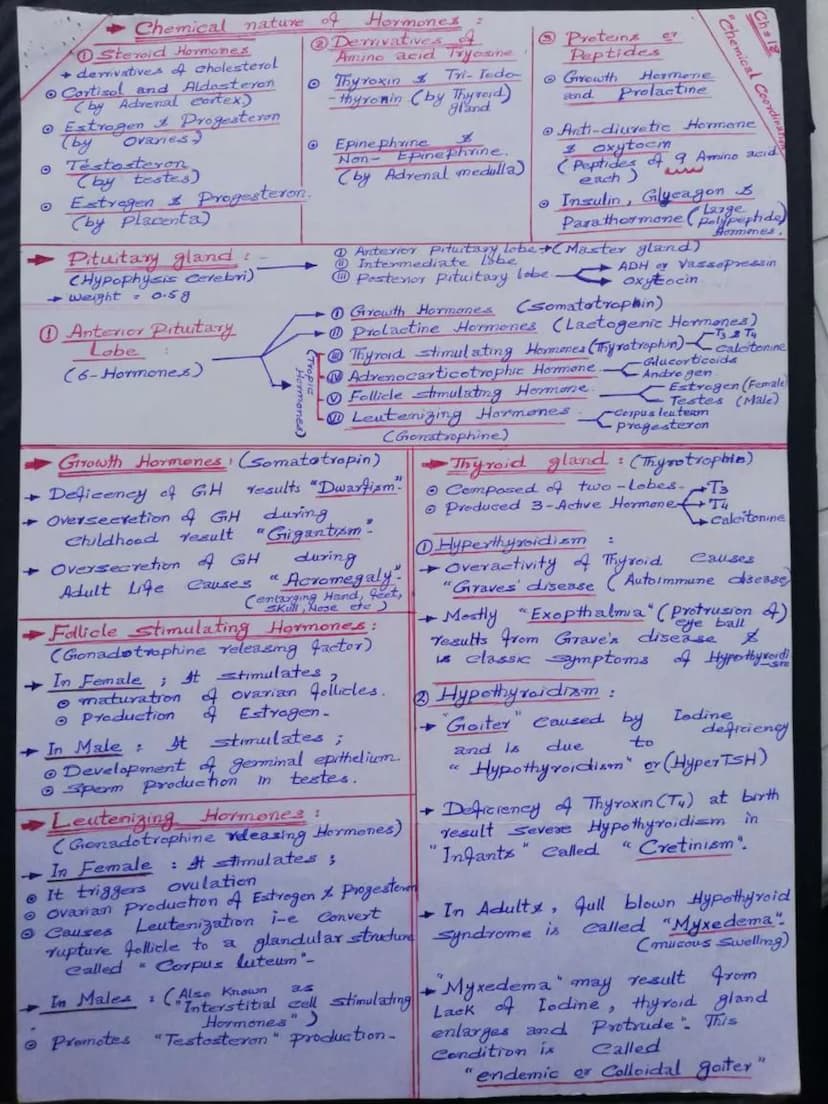 Ch#18
"Chemical Coordination"
→ Chemical nature of Hormones :
① Steroid Hormones
→ derrivatives of cholesterol
⊙ Cortisol and Aldosteron
(by Adrenal cortex)
⊙ Estrogen & Progesteron
(by Ovaries)
⊙ Testosteron
(by testes)
⊙ Estrogen & Progesteron
(by Placenta)
② Derrivatives of
Amino acid Tryosine
⊙ Thyroxin & Tri-Iodo-
-thyronin (by Thyroid)
gland
⊙ Epinephrine &
Non-Epinephrine.
(by Adrenal medulla)
③ Proteins or
Peptides
⊙ Growth Hormone
and Prolactine
⊙ Anti-diuretic Hormone
& oxytocin
(Peptides of 9 Amino acid
each)
⊙ Insulin, Glycagon &
Parathormone (Large
polypeptide)
Hormones.
→ Pituitary gland :-
(Hypophysis cerebri)
→ weight = 0.5g
① Anterior Pituitary lobe → (Master gland)
② Intermediate lobe
③ Posterior Pituitary lobe
ADH or Vassopressin
oxytocin
① Anterior Pituitary
Lobe :
(6-Hormones)
(Tropic
Hormones)
Ⅰ Growth Hormones (Somatotrophin)
Ⅱ Prolactine Hormones (Lactogenic Hormones)
Ⅲ Thyroid stimulating Hormones (Thyrotrophin)
T3 & T4
Calcitonine
Ⅳ Adrenocarticotrophic Hormone
Glucorticoids
Androgen
Ⅴ Follicle stimulatng Hormone
Estrogen (Female)
Testes (Male)
Ⅵ Leutenizing Hormones
Corpus leuteam
progesteron
(Gonatrophine)
→ Growth Hormones : (Somatotropin)
→ Deficency of GH results "Dwarfism"
→ Oversecretion of GH during
childhood result "Gigantism"
→ Oversecretion of GH during
Adult Life causes "Acromegaly"
(enlarging Hand, feet,
skull, Nose etc)
→ Follicle Stimulating Hormones :
(Gonadotrophine releasing factor)
→ In Female ; It stimulates,
⊙ maturation of ovarian follicles.
⊙ production of Estrogen.
→ In Male : It stimulates ;
⊙ Development of germinal epithelium.
⊙ Sperm production in testes.
→ Leutenizing Hormones :
(Gonadotrophine releasing Hormones)
→ In Female : It stimulates ;
⊙ It triggers ovulation
⊙ Ovarian Production of Estrogen & Progesteron
⊙ Causes Leutenization i-e Convert
rupture follicle to a glandular structure
called "Corpus luteum"-
→ In Males : (Also Known as
"Interstitial cell stimulating
Hormones")
⊙ Promotes "Testosteron" production-
→ Thyroid gland : (Thyrotrophin)
⊙ Composed of two-Lobes.
⊙ Produced 3-Active Hormone
T3
T4
calcitonine
① Hyperthyroidism :
→ Overactivity of Thyroid Causes
"Graves' disease (Autoimmune disease)
→ Mostly "Exopthalmia" (Protrusion of)
eye ball
results from Grave's disease &
is classic symptoms of Hypothyroidi
-sm
② Hypothyroidism :
→ "Goiter" Caused by Iodine
deficiency
and is due to
"Hypothyroidism" or (HyperTSH)
→ Deficiency of Thyroxin(T4) at birth
result severe Hypothyroidism in
"Infants" called "Cretinism".
→ In Adults, full blown Hypothyroid
Syndrome is called "Myxedema"-
(mucous Swelling)
→ "Myxedema" may result from
Lack of Iodine, thyroid gland
enlarges and Protrude". This
Condition is called
"endemic or Colloidal goiter"